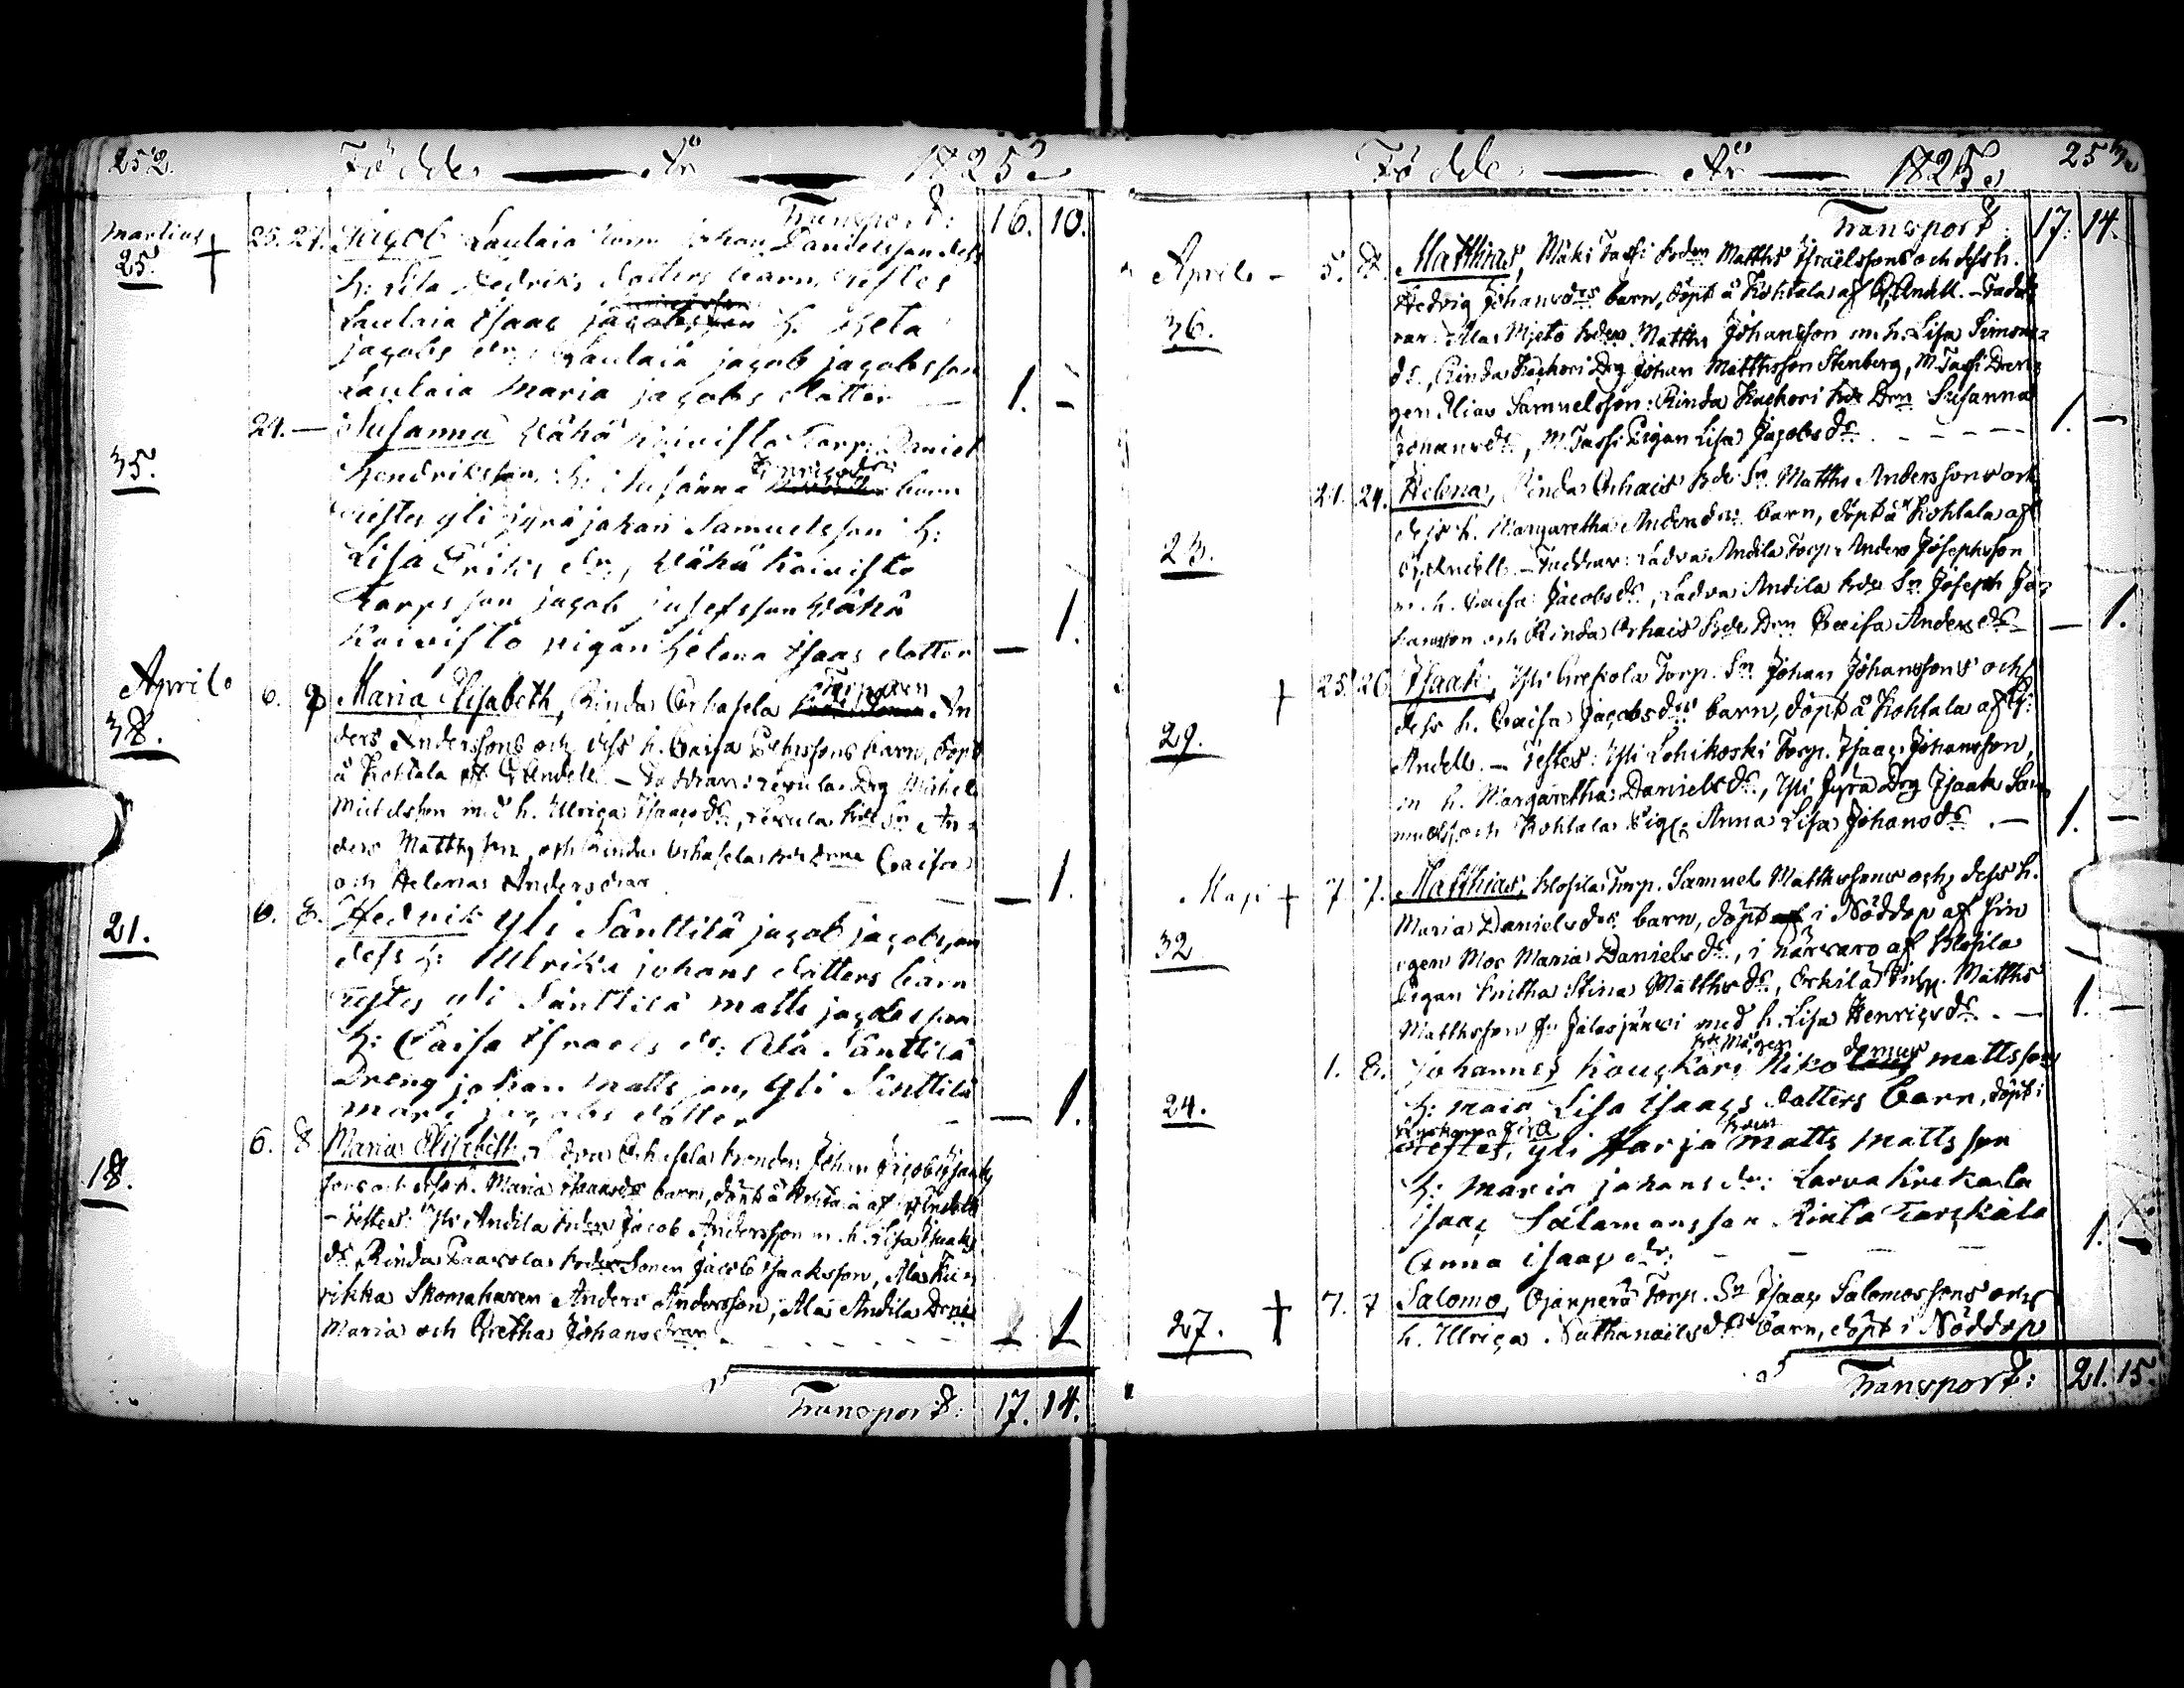 252.
Födde År 1825.
Transport: 16. 10.
Martius 25. 25. 27. Jacob Laulaia Johan Danielsson dess
h: Lisa Hedriks dotters barn, testes
Laulaia Isaac h: Greta
Jacobs dr, Laulaia jacob jacobsson
Laulaia Maria jacobs dotter 1. -
35. 27. — Susanna Wähä Koivisto Torp: Daniel
Hendriksson h: Susanna Henricsdrs barn
testes yli jyrä johan Samuelsson h:
Lisa Eriks dr, Wähä Koivisto
Torps son jacob josefsson Wähä
Koivisto pigan Helena Isaacs dotter — 1.
Aprile 38. 6. 7 Maria Elisabeth, Rinda Orhasela Torparen An
ders Anderssons och dess h. Caisa barn, döpt
å Kohtala af G Andell — Faddrar: Drg Michel
Michelsson med h. Ulrica Isaacs dr, An-
ders Mattsson, och Rinda Orhasela Caisa
och Helena Andersdrar — 1.
21. 6. 8. Hednrik yli Sänttilä jacob jacobsson
dess h: Ulrika johans dotters barn
Testes yli Sänttilä matts jacobsson
h: Caisa Israels dr: Ala Sänttilä
Dreng johan Matts son, yli Sänttilä
mari jacobs dotter — 1.
18. 6. 8 Maria Elisabeth, Orhasela bonden Johan
sons och dess h. Maria Isaacsdrs barn, döpt å Kohtala af G Andell
– Testes: Yli Andila bden Jacob Andersson m. h. Lisa Isaacs
dr, Rinda Paavola Sonen Jacob Isaaksson, Ala
rikka Skomakaren Anders Andersson, Ala Andila
Maria och Gretha Johans drar 1
Transport: 17. 14.
253.
Födde År 1825.
Transport: 17. 14.
Aprile – 36. 5. 8. Matthias, Mäki Tassi bden Matths Israëlssons och dess h.
Hedvig Johansdrs barn, döpt å Kohtala af G Andell. – Fadd
rar: Ala Mieto bden Matths Johansson m. h. Lisa Simons-
dr, Rinda Kachori Drg Johan Matthsson Stenberg, M Tassi Dren
gen Elias Samuelsson: Rinda Kachori Susanna
Johansdr, M. Tassi Pigan Lisa Jacobs dr 1. —
23. 21. 24. Helena, Rinda Orhais Sn. Matths Anderssons och
dess h. Margaretha Anders drs barn, döpt å Kohtala af
G Andell. – Faddrar: Ladva Andila Torp: Anders Josephsson
m. h. Caisa Jacobs dr, Ladva Andila Sn. Joseph Jo
hansson och Rinda Orhais Caisa Anders dr — 1.
29. 25. 26. Isaak, Yli Torp. Sn Johan Johanssons och
dess h. Caisa Jacobsdrs barn, döpt å Kohtala af G:
Andell. – Testes: Yli Lehikoski Torp. Isaac Johansson,
m h. Margaretha Daniels dr, Yli Jyrä Drg Isaak Sa
muelss och Kohtala Pig: Anna Lisa Johans dr. — 1. —
Maji 32 7. 7. Matthias, Klosila Torp. Samuel Matthssons och dess h.
Maria Daniels drs barn, döpt i Nöddop af sin
egen Mor Maria Daniels dr, i närvaro af Klosila
Pigan Gretha Stina Matths dr, Erkilä Matths
Matthsson fr. Jalasjärvi med h. Lisa Henrics dr. — 1. —
24. 1. 8. Johannes Kouckari Niko demus mattsson
h: maia Lisa Isaacs dotters barn, döpt i
testes, yli Harja matts Matts son
h: maria johans dr: Larva
Isaac Salamonsson Rinta Torckala
Anna isaac dr: 1. -
27. 7. 7 Salomo, Ojanperä Torp. Sn Isaac Salomossons och
h. Ulrica Nathanaëls drs barn, döpt i Nöddop
Transport: 21. 15.